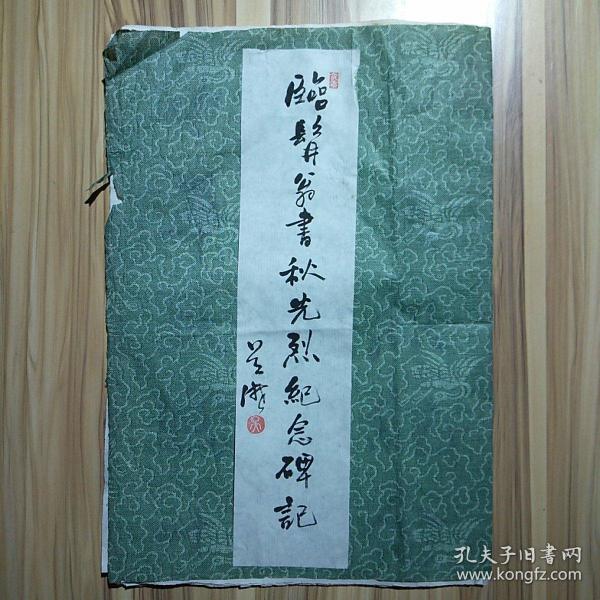 臨髯翁書秋先烈紀念碑記
孔夫子旧书网
www.kongfz.com